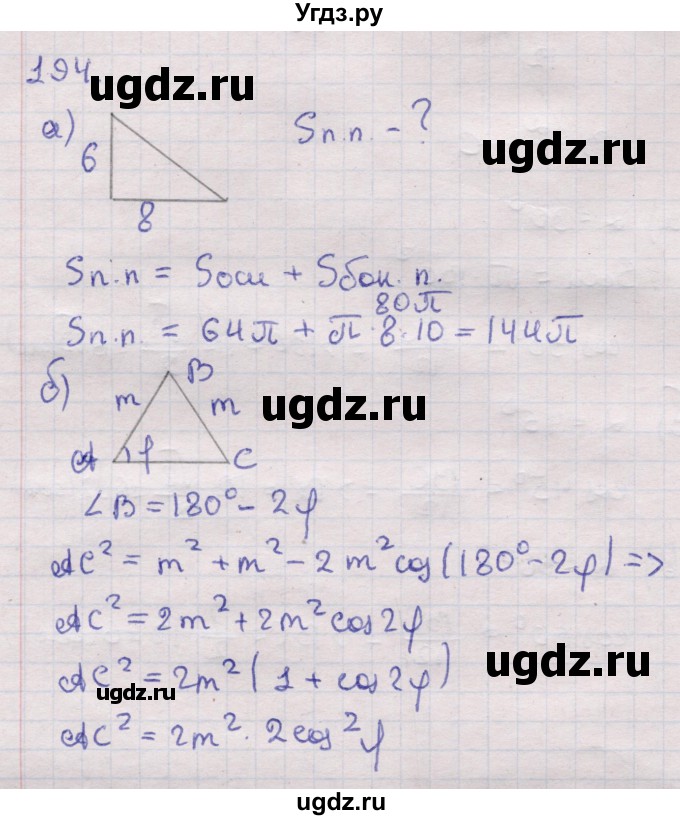 Угдз.ру
194
ugdz.ru
а)
6
8
Sп.п. - ?
ugdz.ru
Sп.п = Sосн + Sбок. п.
80π
Sп.п. = 64π + π·8·10 = 144π
б)
B
m
m
ugdz.ru
A
φ
C
∠B = 180° - 2φ
AC² = m² + m² - 2m² cos(180° - 2φ) =>
AC² = 2m² + 2m² cos2φ
AC² = 2m² (1 + cos2φ)
ugdz.ru
ugdz.ru
AC² = 2m² · 2cos²φ
ugdz.ru